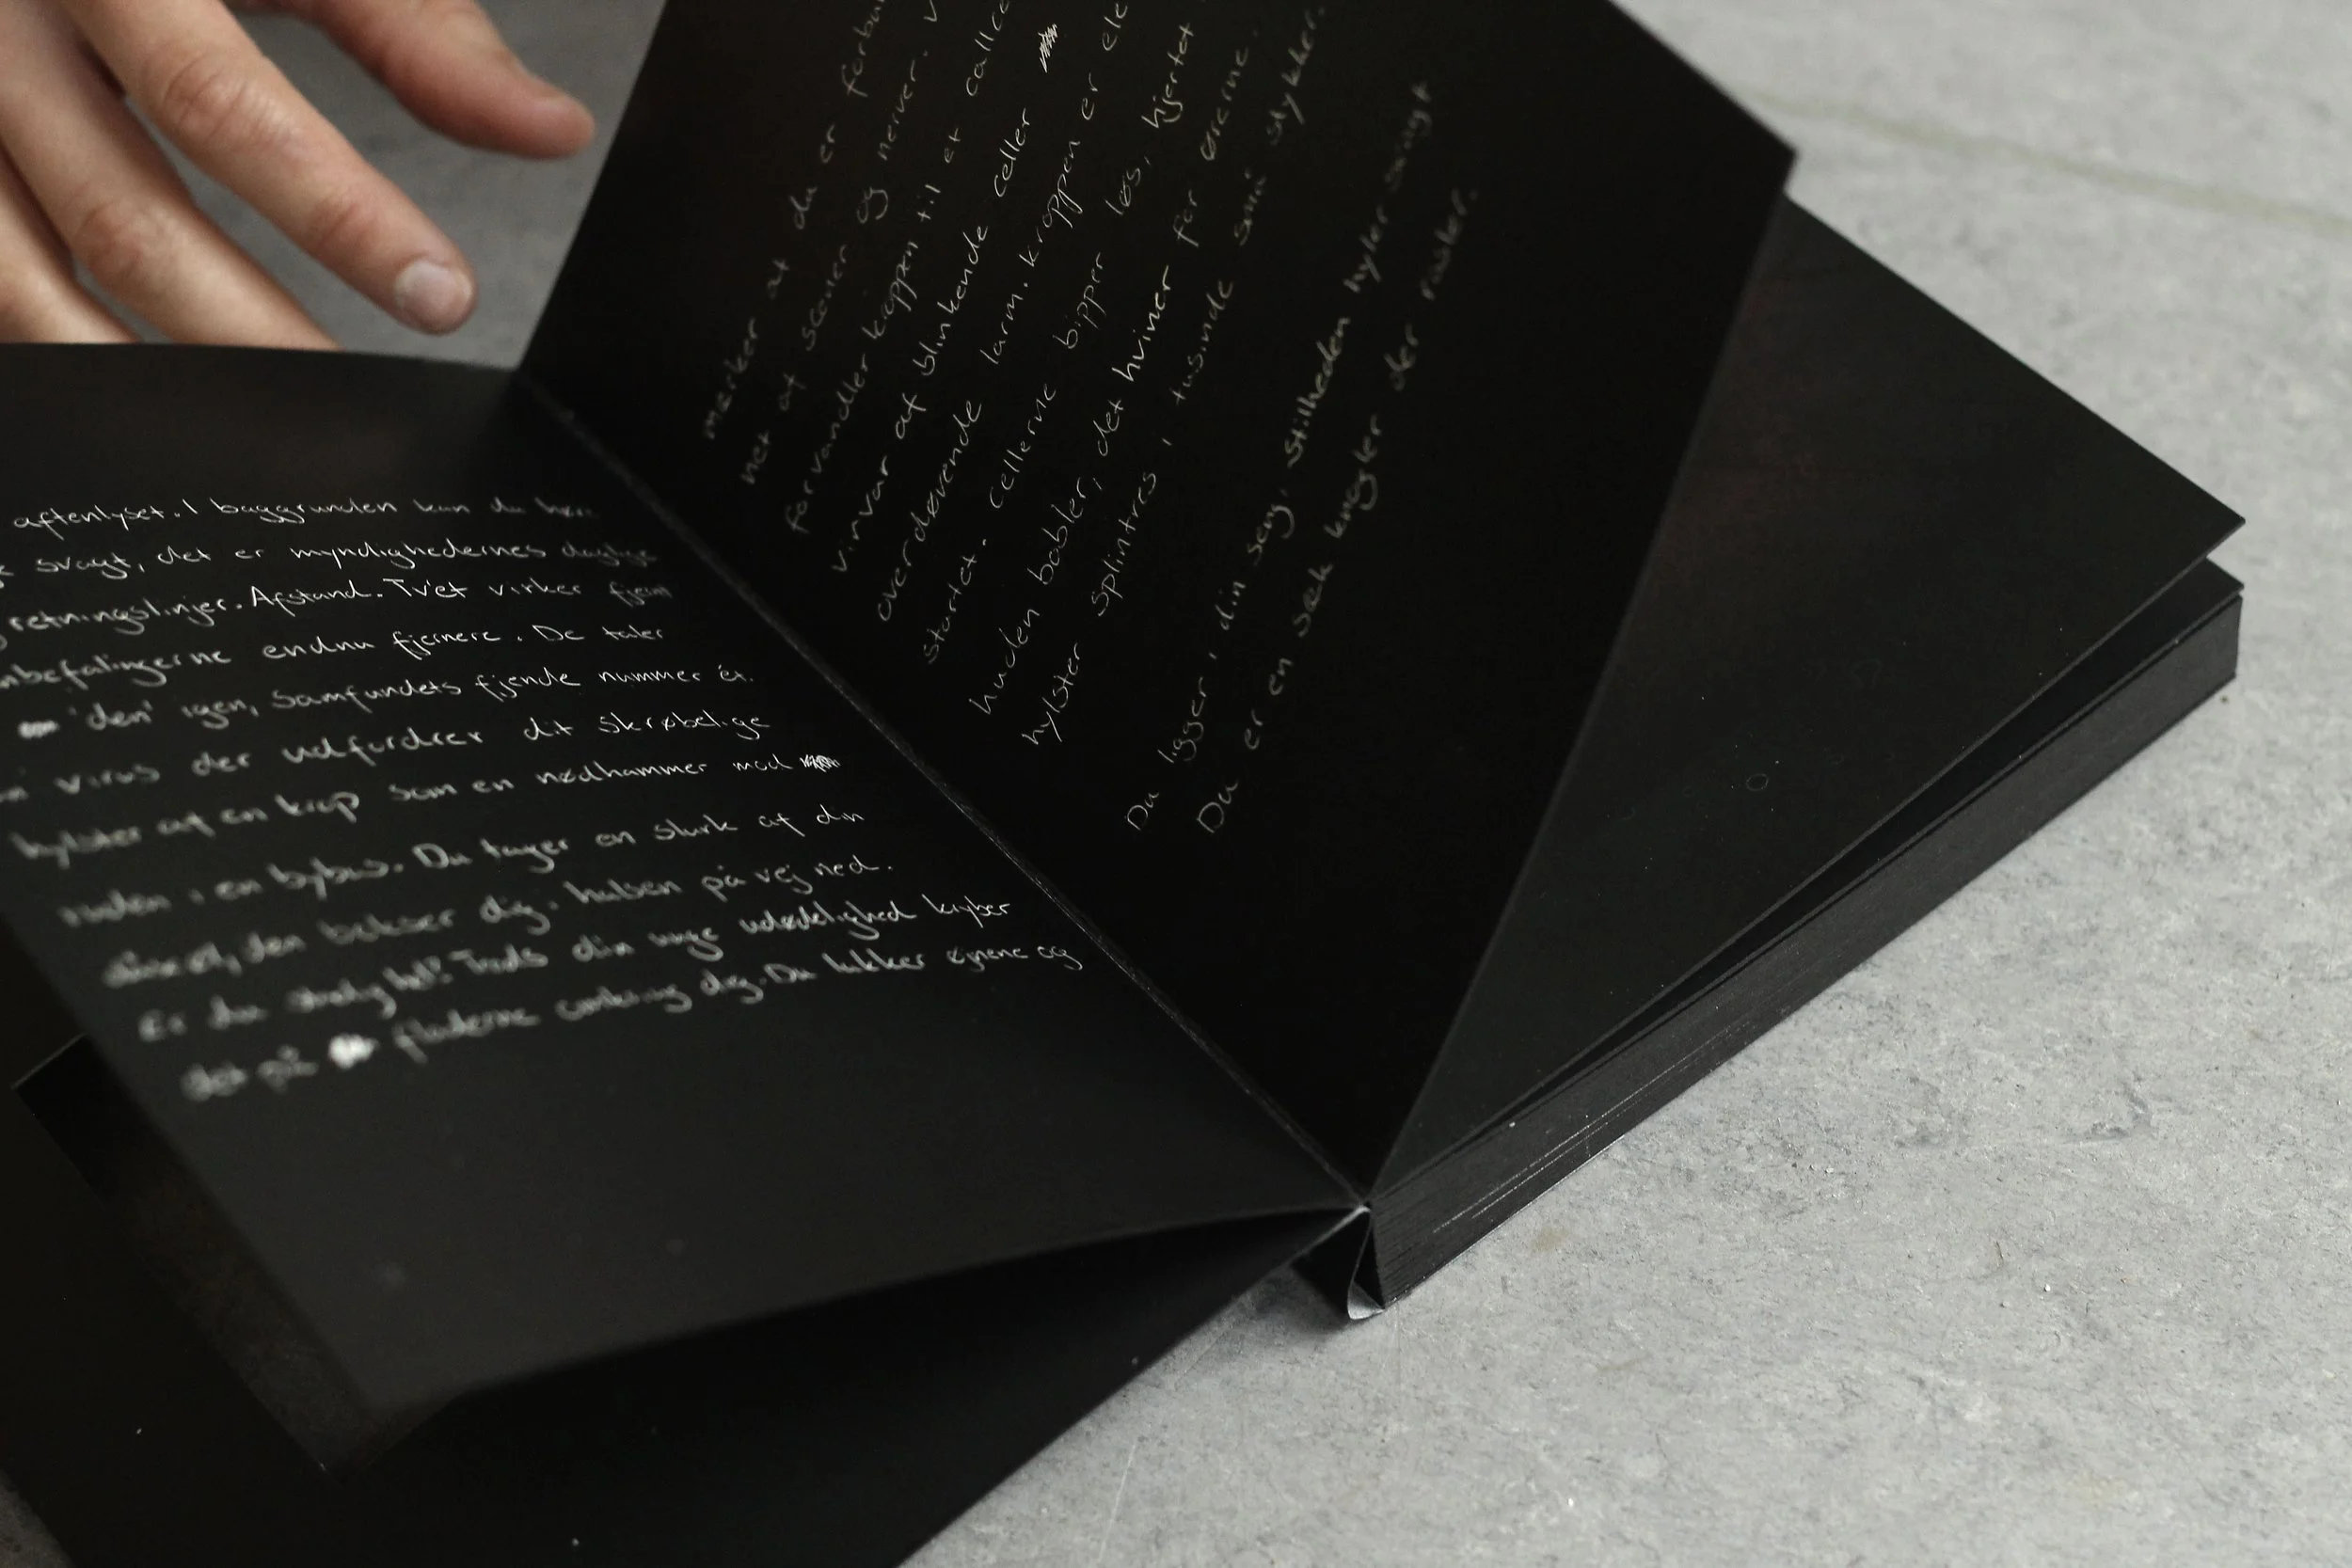 aftenlyset. I baggrunden kan du høre
svagt, det er myndighedernes daglige
retningslinjer. Afstand. Tv'et virker fjern
anbefalingerne endnu fjernere. De taler
'den' igen, samfundets fjende nummer ét.
virus der udfordrer dit skrøbelige
hylster af en krop som en nødhammer mod
ruden i en bybus. Du tager en slurk af din
den bokser dig i halsen på vej ned.
Er du Trods din unge udødelighed kryber
det på fladerne omkring dig. Du lukker øjnene og
mærker at du er
net af scener og nerver.
forvandler kroppen til et
virvar af blinkende celler
overdøvende larm. kroppen er
startet. cellerne bipper løs, hjertet
huden bobler, det hviner for ørerne.
hylster splintres i tusinde små stykker.
Du ligger i din seng, stilheden hyler svagt
Du er en sæk knogler der rasler.